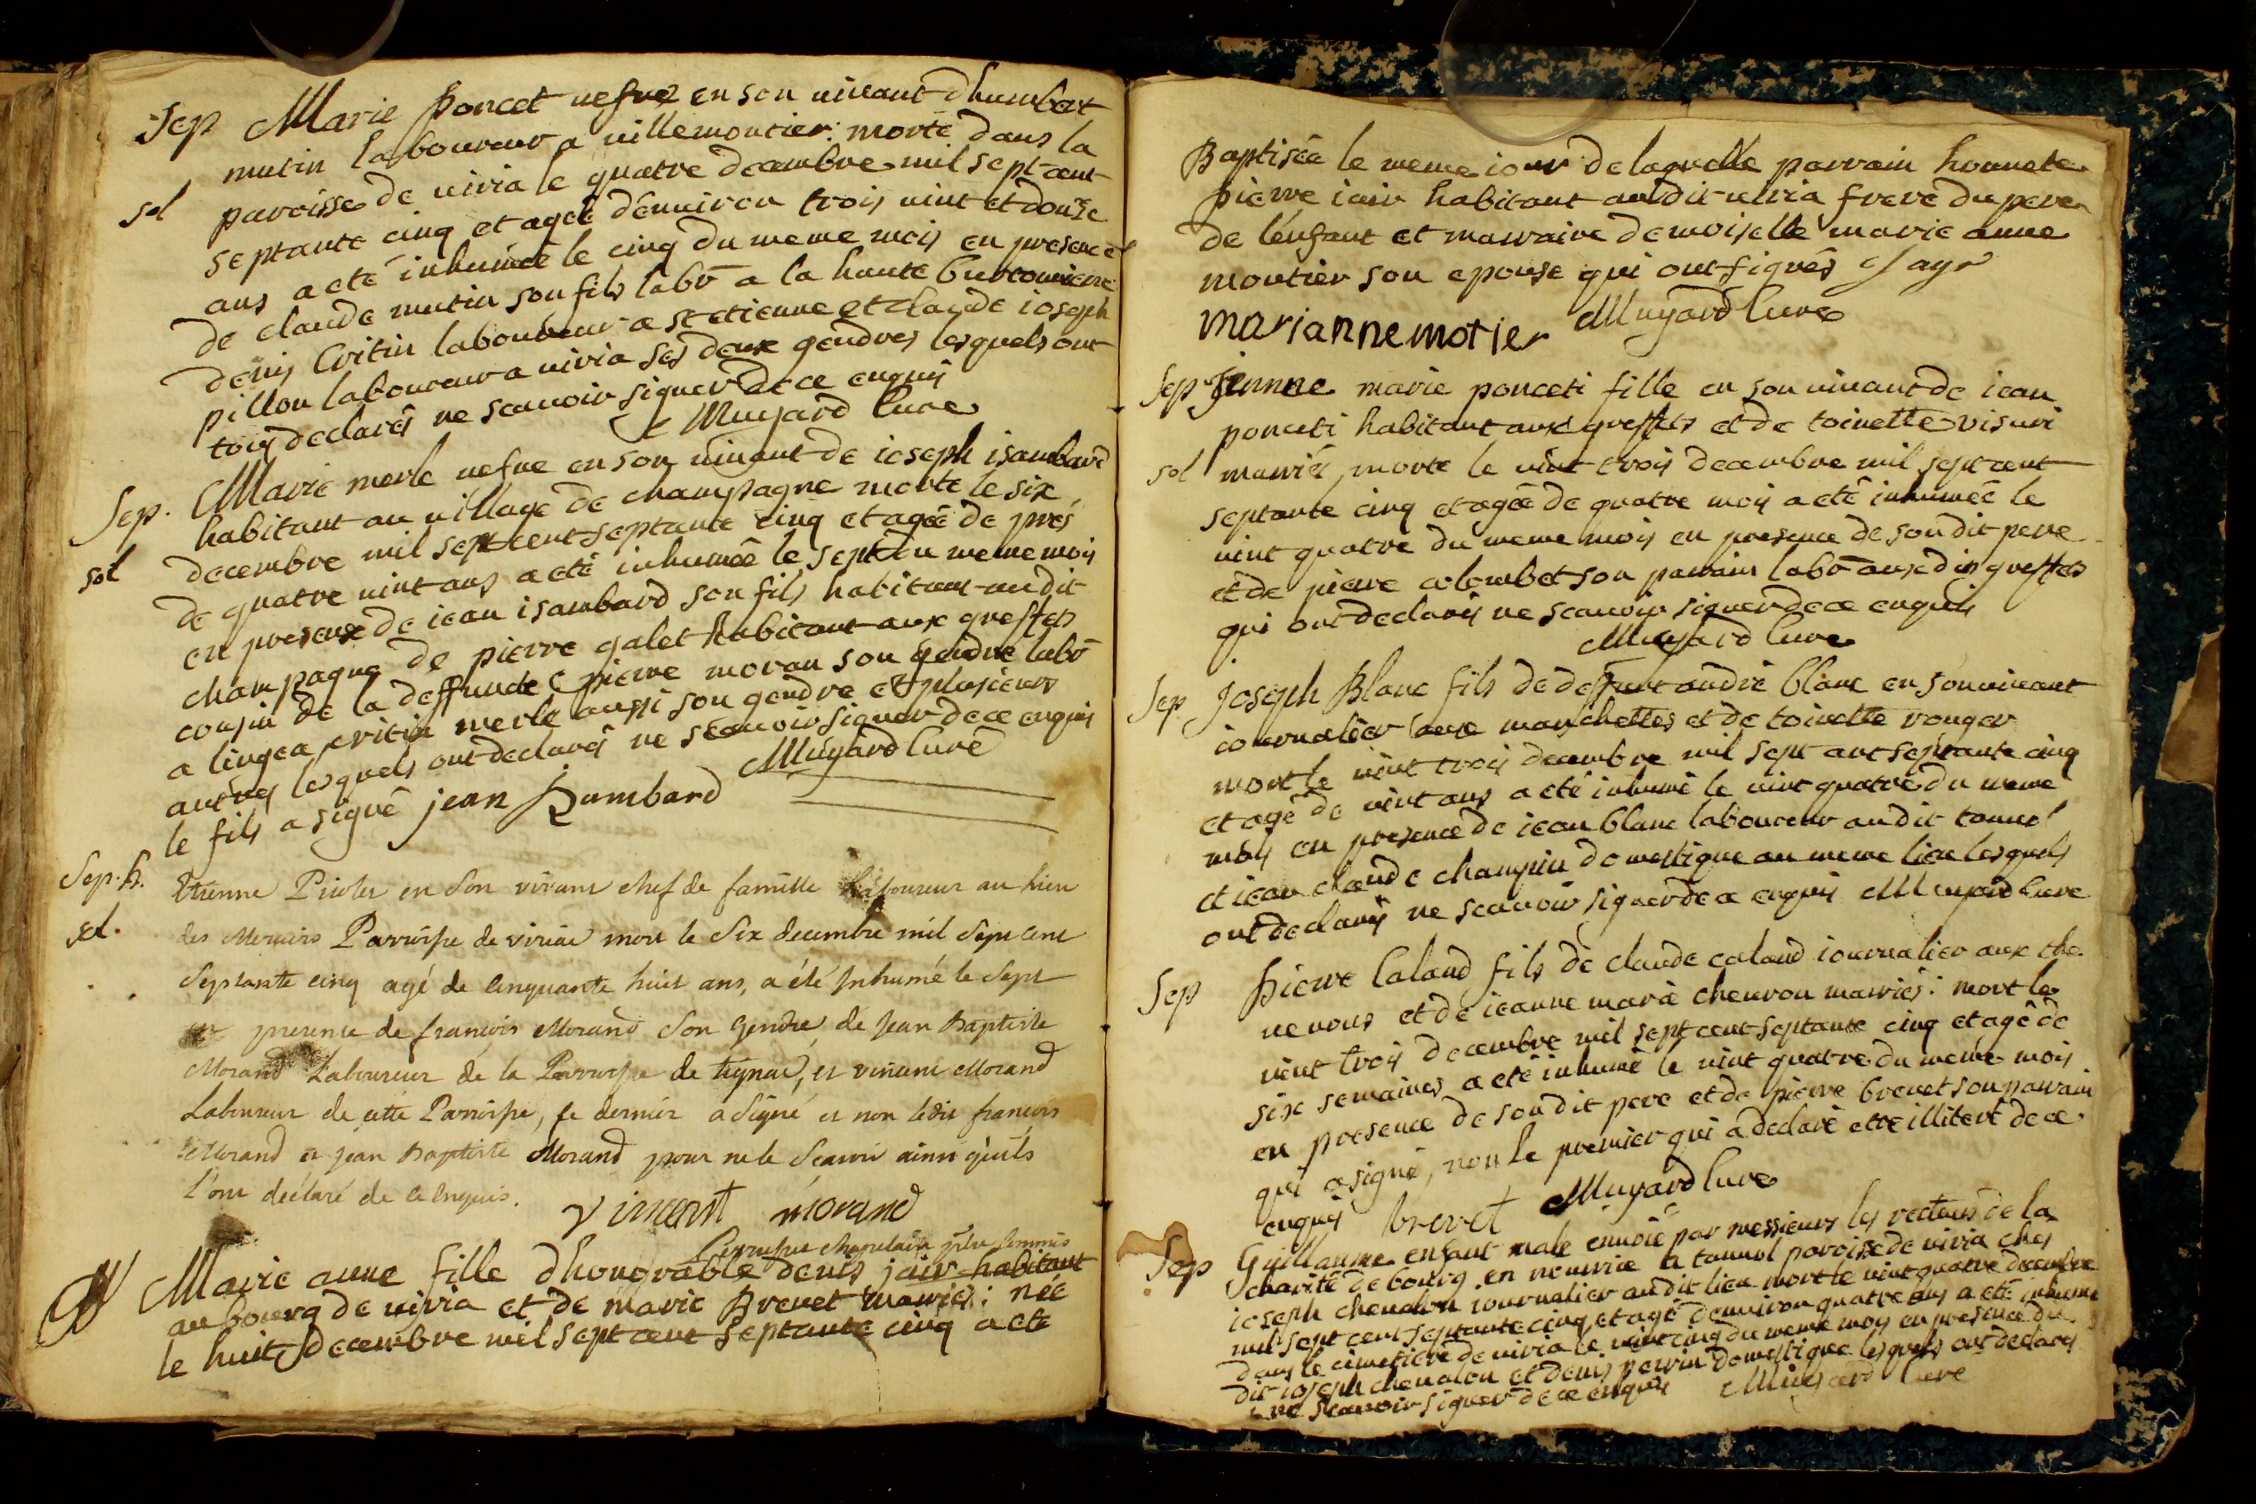 Sep Marie poncet vefve en son vivant dhumbert
mutin laboureur a villemontier: morte dans la
sol paroisse de viria le quatre decembre mil sept cent
septante cinq et ageé d'environ trois vint et douse
ans a eté inhumée le cinq du meme mois en presence
de claude mutin son fils labo a la haute
denis Critin laboureur a st etienne et claude ioseph
pillon laboureur a viria ses deux gendres lesquels ont
tous declarés ne scavoir signer de ce enquis
Muyard Cure
Sep. Marie merle vefve en son vivant de ioseph isambard
habitant au village de champagne morte le six
sol decembre mil sept cent septante cinq et ageé de prés
de quatre vint ans a eté inhumée le sept du meme mois
en presence de iean isambard son fils habitant audit
champagne de pierre galet habitant aux greffets
cousin de la deffunte pierre moran son gendre labo
a lingea critin merle aussi son gendre et plusieurs
autres lesquels ont declarés ne scavoir signer de ce enquis
le fils a signé jean Isambard Muyard Curé
Sep. h. Etienne Pioler en Son vivant chef de famille Laboureur au lieu
sol. des Parroisse de viriac mort le Six decembre mil Sept cent
Septante cinq agé de Cinquante huit ans, a été Inhumé le Sept
en presence de francois Morand Son Gendre, de Jean Baptiste
Morand Laboureur de la Parroisse de , et vincent Morand
Laboureur de cette Parroisse, ce dernier a Signé et non ledit francois
Morand et jean Baptiste Morand pour ne le Scavoir ainsi qu'ils
l'ont declaré de ce Enquis.
vincent morand
chapelain ptre Commis
Marie anne fille dhonorable denis jair habitant
au bourg de viria et de marie Brevet mariés: née
le huit decembre mil sept cent septante cinq a eté
Baptisée le meme iour de laquelle parrain honnete
pierre iair habitant audit viria frere du pere
de l'enfant et marraine demoiselle marie anne
montier son epouse qui ont signés Jayr
mariannemotier Muyard Cure
Sep Jeanne marie ponceti fille en son vivant de iean
ponceti habitant aux greffets et de toinette visuri
sol mariés, morte le vint trois decembre mil sept cent
septante cinq et agée de quatre mois a eté inhumée le
vint quatre du meme mois en presence de son dit pere
et de pierre colombet son parrain labo aux dis greffets
qui ont declarés ne scavoir signer de ce enquis
Muyard Cure
Sep Joseph Blanc fils de deffunt andré blanc en son vivant
iournalier aux manchettes et de toinette rouger
mort le vint trois decembre mil sept cent septante cinq
et agé de vint ans a eté inhumé le vint quatre du meme
mois en presence de iean blanc laboureur audit tannol
et iean claude champin domestique au meme lieu lesquels
ont declarés ne scavoir signer de ce enquis Muyard Cure
Sep pierre Caland fils de claude caland iournalier aux che-
nevous et de ieanne marie chevron mariés: mort le
vint trois decembre mil sept cent septante cinq et agé de
six semaines a eté inhumé le vint quatre du meme mois
en presence de son dit pere et de pierre brevet son parrain
qui a signé, non le premier qui a declaré etre illiteré de ce
enquis brevet Muyard Cure
Sep Guillaume enfant male envoié par messieurs les recteurs de la
charité de bourg en nourrice a tannol paroisse de viria ches
ioseph chevalon iournalier audit lieu mort le vint quatre decembre
mil sept cent septante cinq et agé d'environ quatre ans a eté inhumé
dans le cimetiere de viria le vint cinq du meme mois en presence du
dit ioseph chevalon et denis perrin domestique lesquels ont declarés
ne scavoir signer de ce enquis Muyard Cure